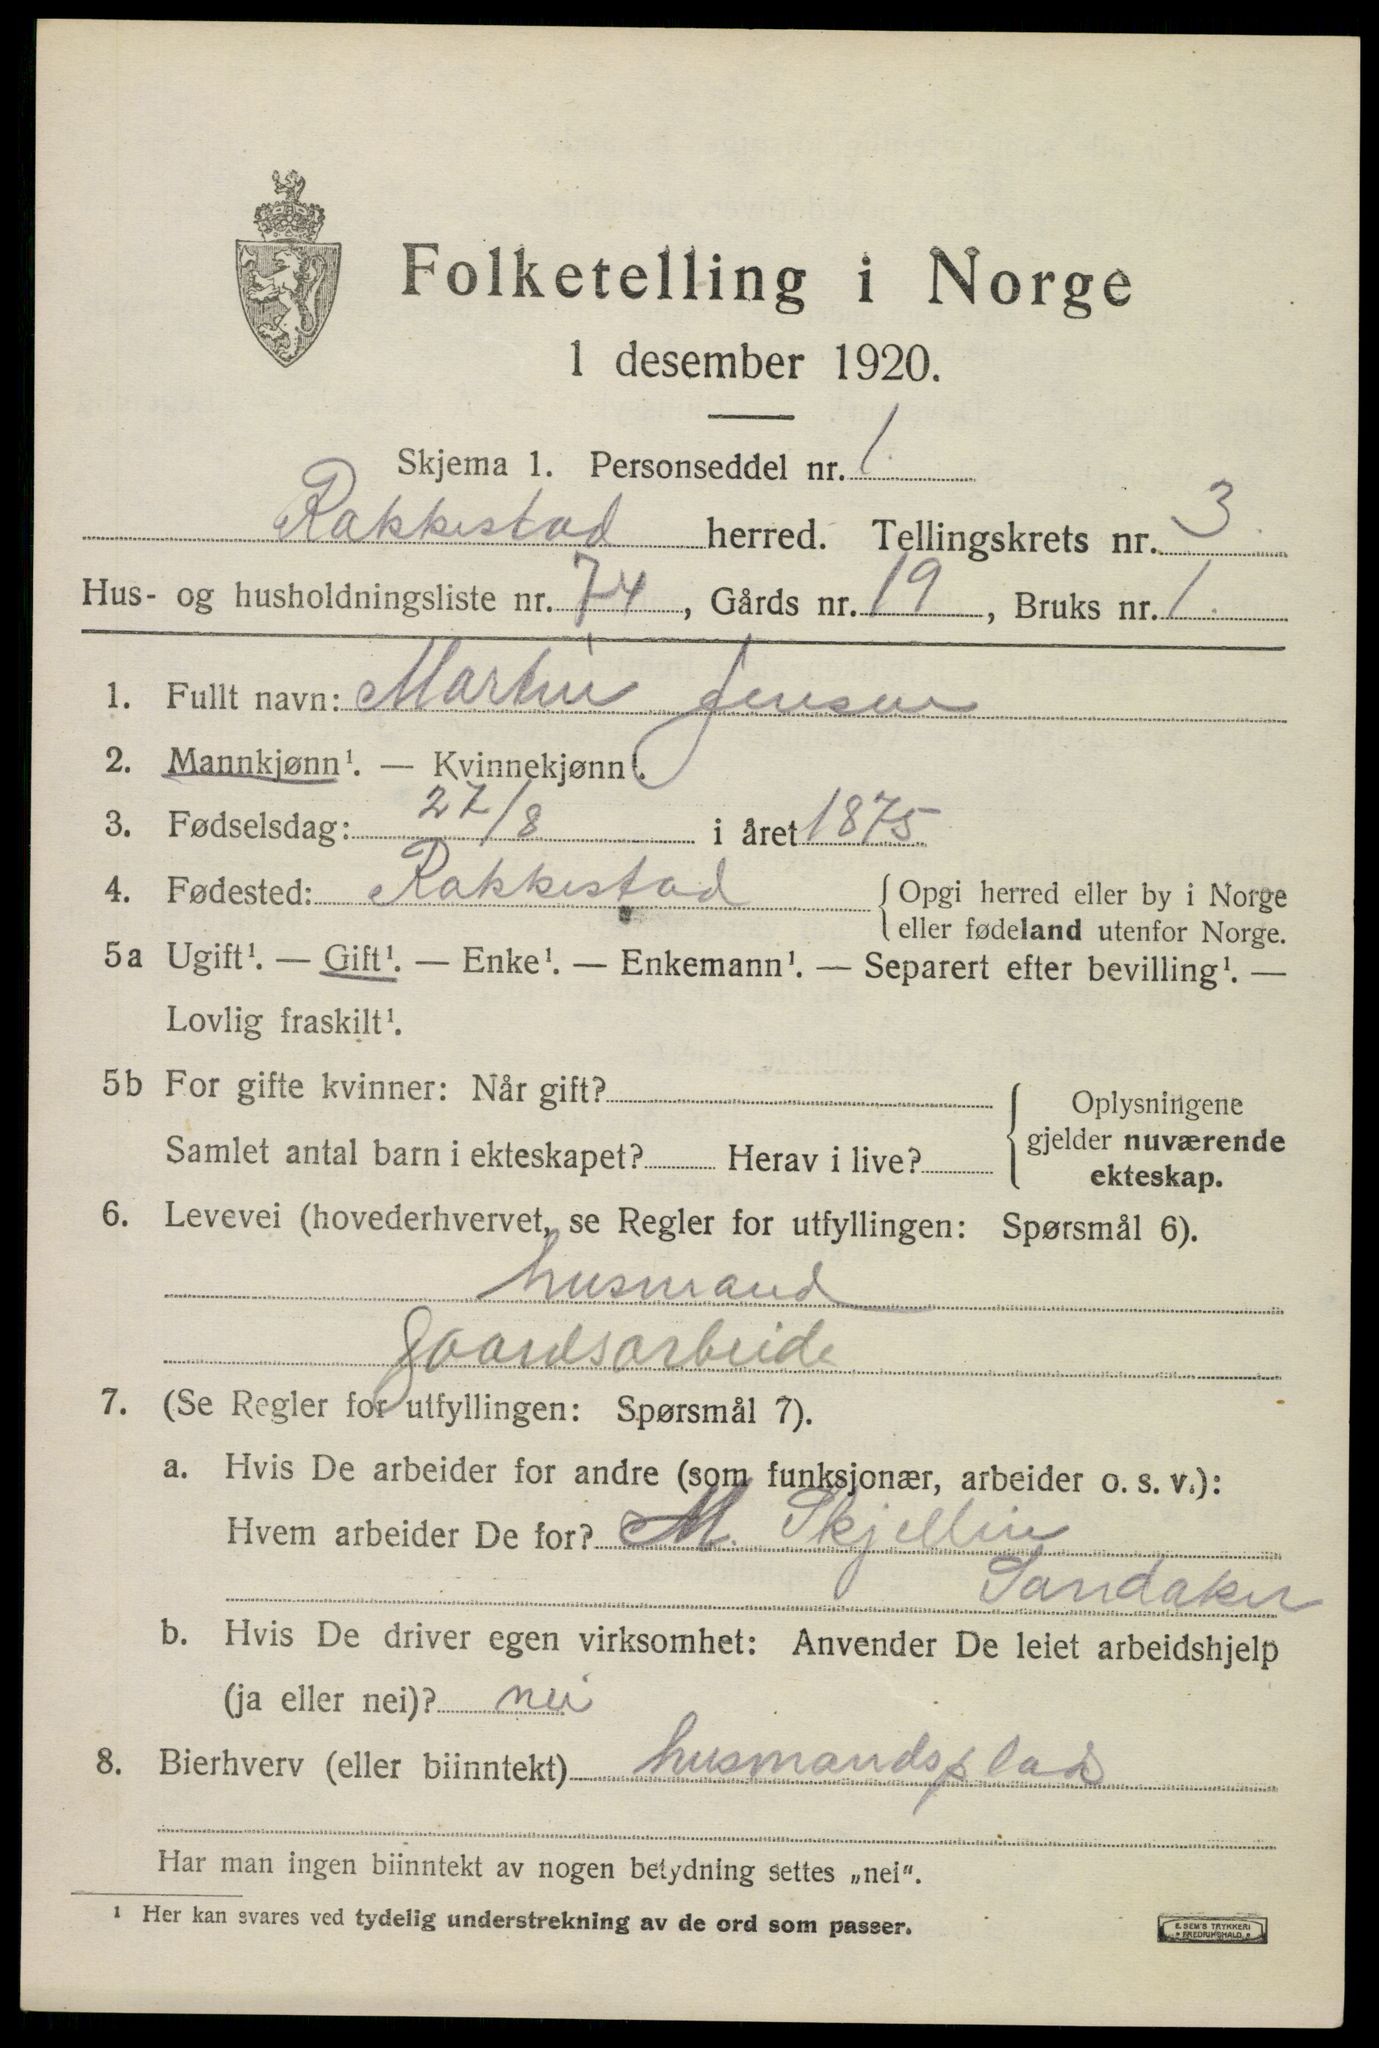 Folketelling i Norge
1 desember 1920.
Skjema 1. Personseddel nr. 1.
Rakkestad herred. Tellingskrets nr. 3.
Hus- og husholdningsliste nr. 74, Gårds nr. 19, Bruks nr. 1.
1. Fullt navn: Martin Jensen
2. Mannkjønn¹. — Kvinnekjønn¹.
3. Fødselsdag: 27/8 i året 1875
4. Fødested: Rakkestad { Opgi herred eller by i Norge
eller fødeland utenfor Norge.
5a Ugift¹. — Gift¹. — Enke¹. — Enkemann¹. — Separert efter bevilling¹. —
Lovlig fraskilt¹.
5b For gifte kvinner: Når gift? { Oplysningene
gjelder nuværende
Samlet antal barn i ekteskapet? Herav i live?
ekteskap.
6. Levevei (hovederhvervet, se Regler for utfyllingen: Spørsmål 6).
husmand
gaardsarbeide
7. (Se Regler for utfyllingen: Spørsmål 7).
a. Hvis De arbeider for andre (som funksjonær, arbeider o. s. v.):
Hvem arbeider De for? M. Skjellin
Sandaker
b. Hvis De driver egen virksomhet: Anvender De leiet arbeidshjelp
(ja eller nei)? nei
8. Bierhverv (eller biinntekt) husmandsplads
Har man ingen biinntekt av nogen betydning settes „nei“.
¹ Her kan svares ved tydelig understrekning av de ord som passer.
E. SEM'S TRYKKERI
FREDRIKSHALD